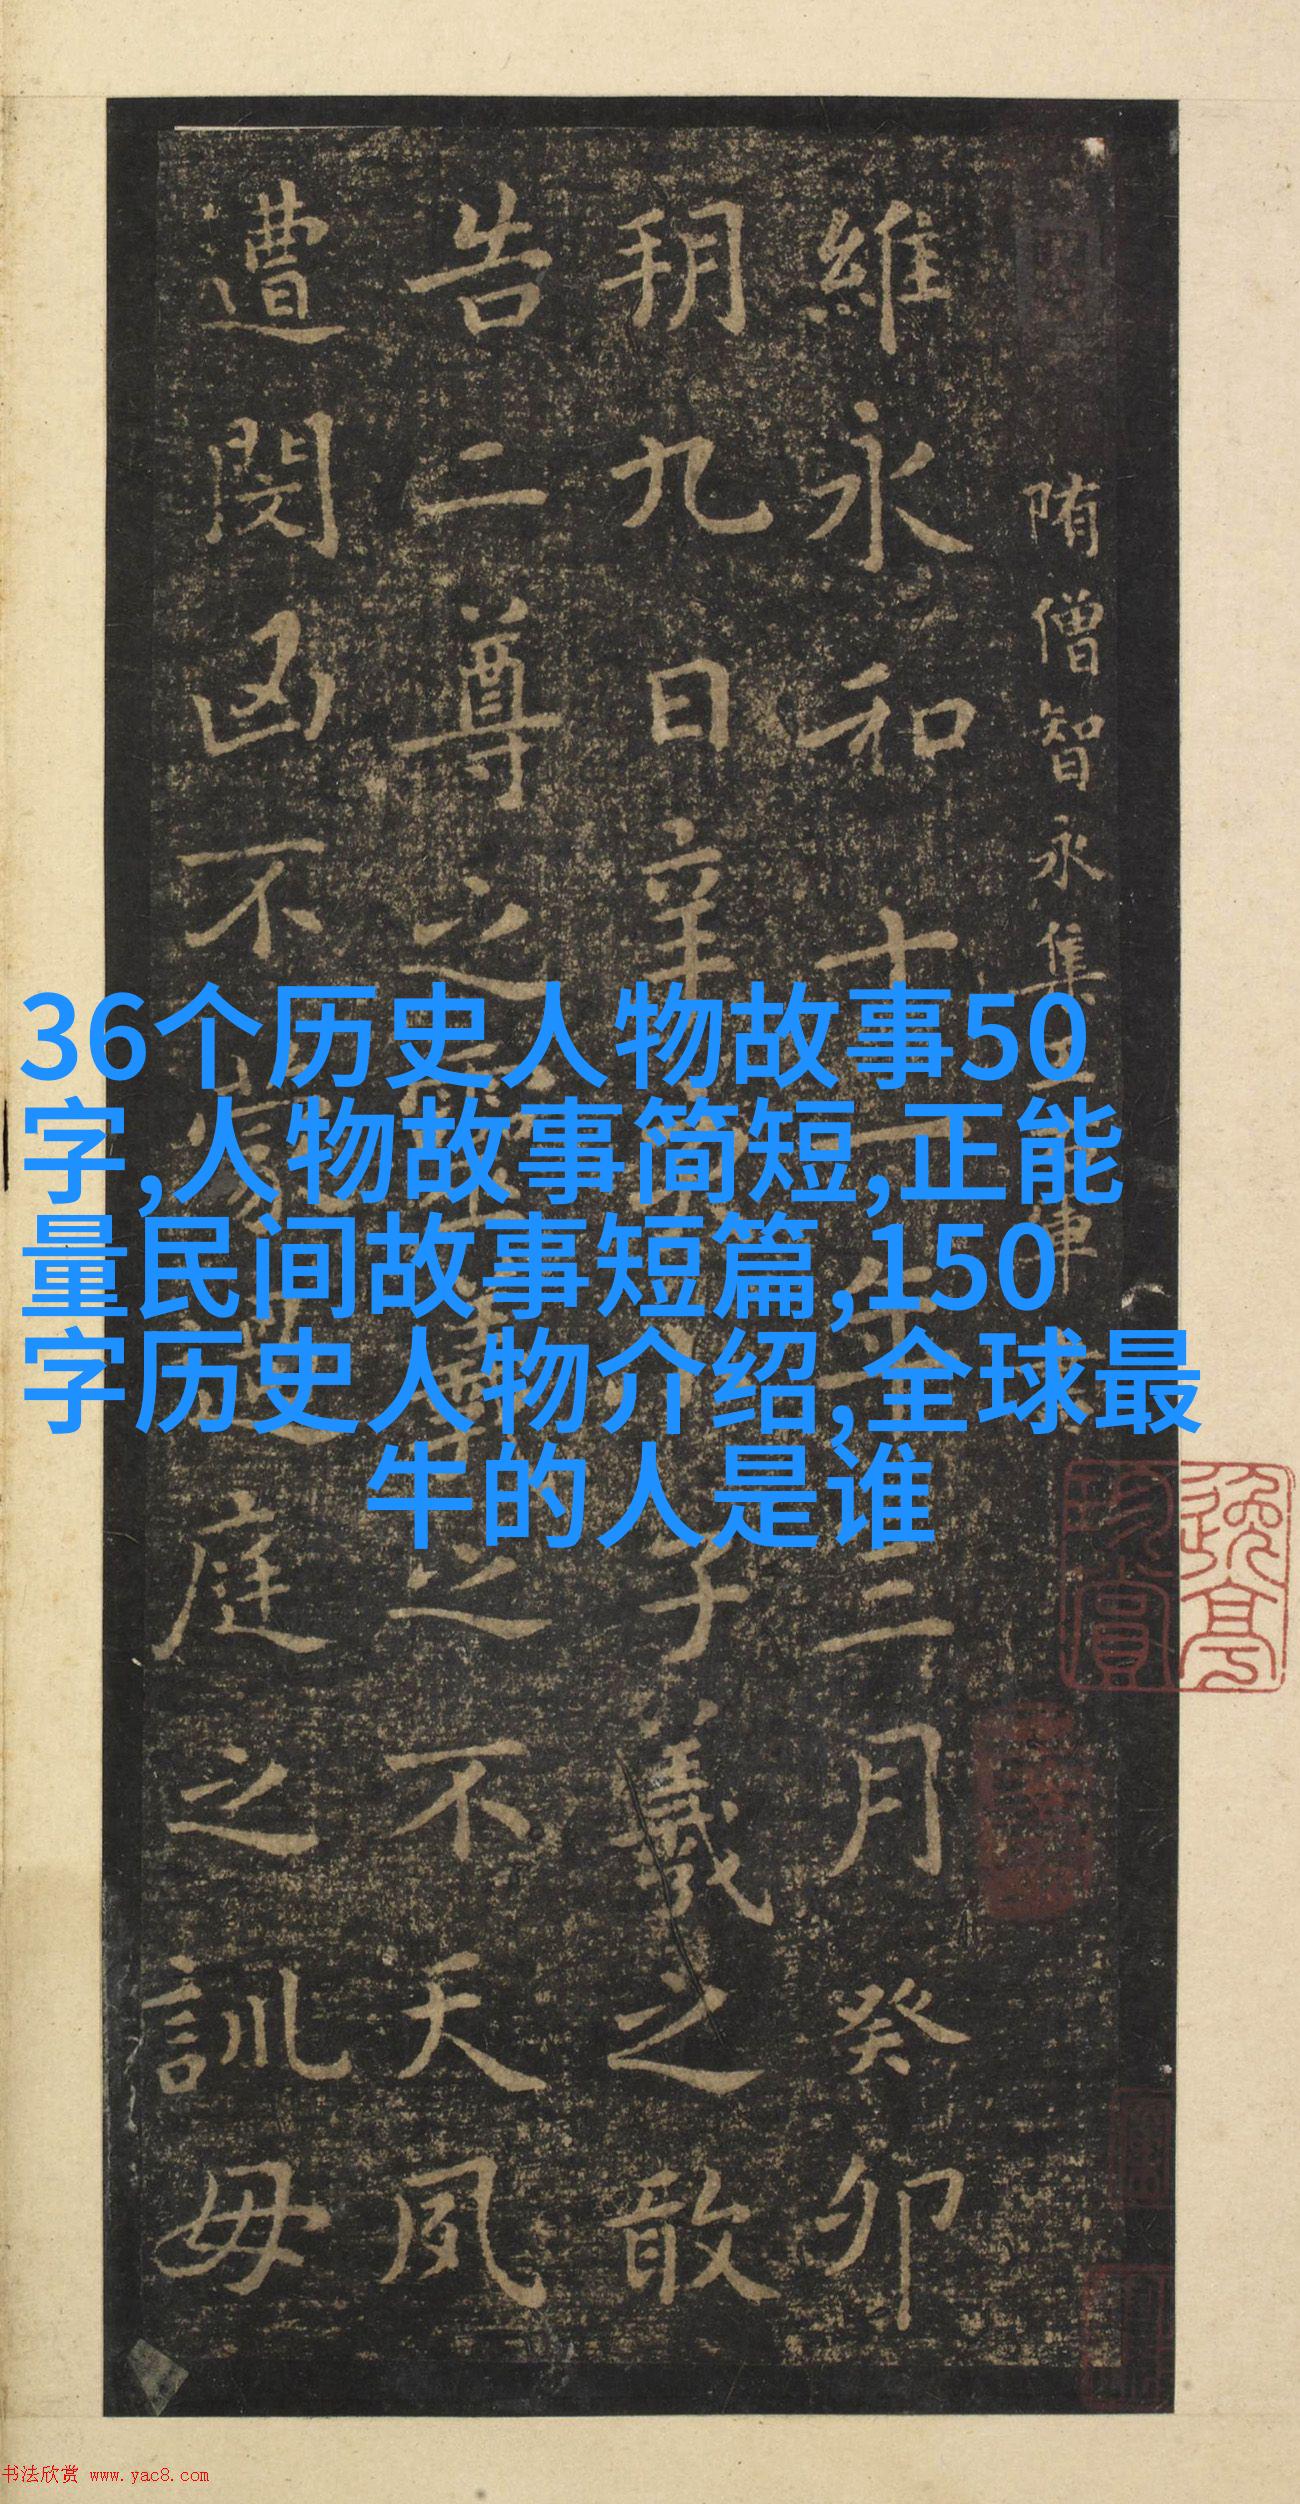 36个历史人物故事50
字,人物故事简短,正能
量民间故事短篇,150
字历史人物介绍,全球最
牛的人是谁
隋僧智永集王右軍
維永和十一年三月癸卯
朔九日辛亥小子羲之敢
告二尊之靈羲之不天夙
遭閔凶不蒙過庭之訓毋
书法欣赏 www.yac8.com